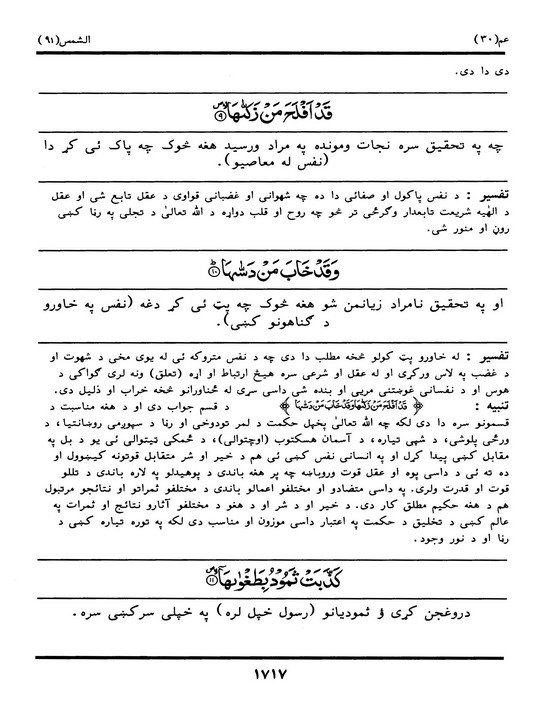 عم (۳۰) الشمس (۹۱)
دی دا دی.
قَدْ أَفْلَحَ مَنْ زَكّٰىهَا ۹
چه په تحقیق سره نجات ومونده په مراد ورسید هغه څوک چه پاک ئی کړ دا
(نفس له معاصیو).
تفسیر : د نفس پاکول او صفائی دا ده چه شهوانی او غضبانی قواوی د عقل تابع شی او عقل
د الهیه شریعت تابعدار وګرځی تر څو چه روح او قلب دواړه د الله تعالیٰ د تجلی په رڼا کښی
روڼ او منور شی.
وَقَدْ خَابَ مَنْ دَسّٰىهَا ۱۰
او په تحقیق نامراد زیانمن شو هغه څوک چه پټ ئی کړ دغه (نفس په خاورو
د ګناهونو کښی).
تفسیر : له خاورو پټ کولو څخه مطلب دا دی چه د نفس متروکه ئی له یوی مخی د شهوت او
د غضب په لاس ورکړی او له عقل او شرعی سره هیڅ ارتباط او اړه (تعلق) ونه لری ګواکی د
هوس او د نفسانی غوښتنی مریی او بنده شی داسی سړی له ځناورانو څخه خراب او ذلیل دی.
تنبیه : ﴿قَدْ أَفْلَحَ مَنْ زَكّٰىهَا وَقَدْ خَابَ مَنْ دَسّٰىهَا﴾ د قسم جواب دی او د هغه مناسبت د
قسمونو سره دا دی لکه چه الله تعالیٰ پخپل حکمت د لمر تودوخی او رڼا د سپوږمی روښانتیا، د
ورځی پلوشی، د شپی تیاره، د آسمان هسکتوب (اوچتوالی)، د ځمکی ټیټوالی ئی یو د بل په
مقابل کښی پیدا کړل او په انسانی نفس کښی ئی هم د خیر او شر متقابل قوتونه کیښوول او
ده ته ئی د داسی پوه او عقل قوت وروباښه چه پر هغه باندی د پوهیدلو په لاره باندی د تللو
قوت او قدرت ولری. په داسی متضادو او مختلفو اعمالو باندی د مختلفو ثمراتو او نتائجو مرتبول
هم د هغه حکیم مطلق کار دی. د خیر او د شر او د هغو د مختلفو آثارو نتائج او ثمرات په
عالم کښی د تخلیق د حکمت په اعتبار داسی موزون او مناسب دی لکه په توره تیاره کښی د
رڼا او د نور وجود.
كَذَّبَتْ ثَمُودُ بِطَغْوٰىهَا ۱۱
دروغجن کړی ؤ ثمودیانو (رسول خپل لره) په خپلی سرکښی سره.
۱۷۱۷